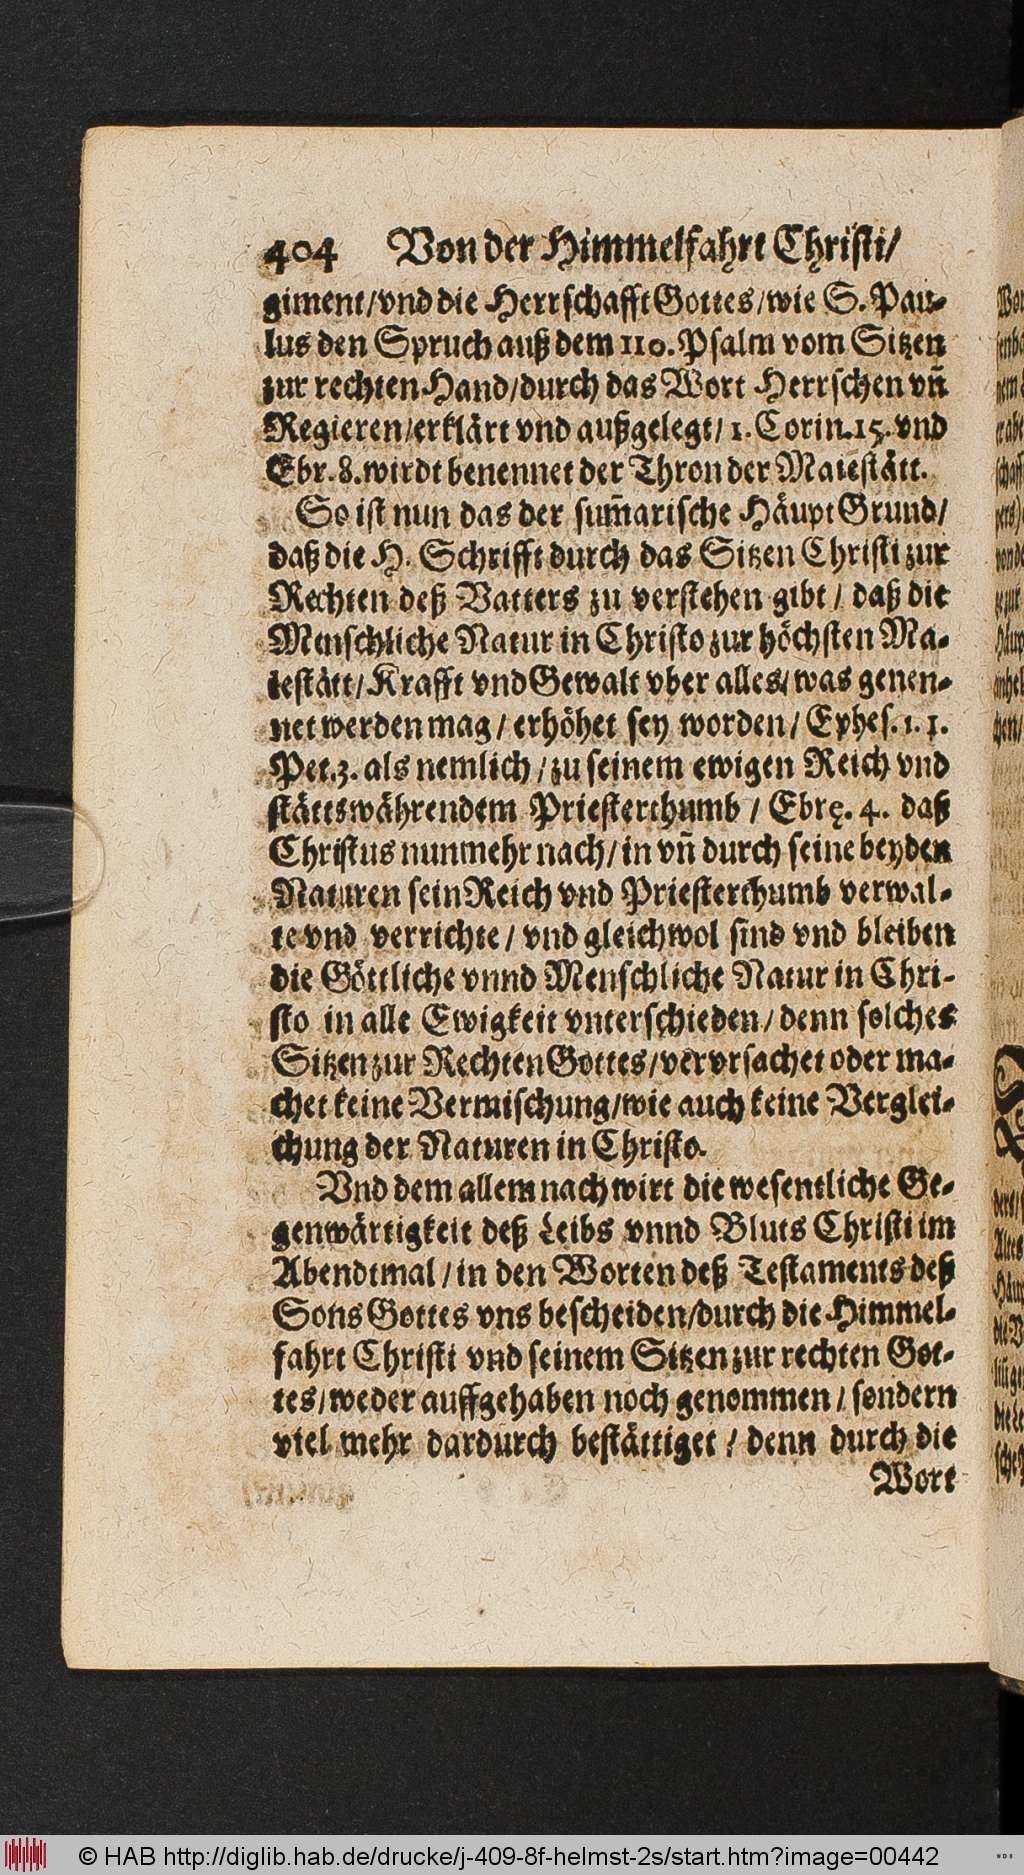 404 Von der Himmelfahrt Christi/
giment/vnd die Herrschafft Gottes/wie S. Pau-
lus den Spruch auß dem 110. Psalm vom Sitzen
zur rechten Hand/durch das Wort Herrschen vn̄
Regieren/erklärt vnd außgelegt/ 1. Corin. 15. vnd
Ebr. 8. wirdt benennet der Thron der Maiestätt.
So ist nun das der sum̄arische Häupt Grund/
daß die H. Schrifft durch das Sitzen Christi zur
Rechten deß Vatters zu verstehen gibt/ daß die
Menschliche Natur in Christo zur höchsten Ma-
iestätt/Krafft vnd Gewalt vber alles/was genen-
net werden mag/ erhöhet sey worden/ Ephes. 1. 1.
Pet. 3. als nemlich/zu seinem ewigen Reich vnd
stättswährendem Priesterthumb/ Ebrę. 4. daß
Christus nunmehr nach/in vn̄ durch seine beyden
Naturen sein Reich vnd Priesterthumb verwal-
te vnd verrichte/ vnd gleichwol sind vnd bleiben
die Göttliche vnnd Menschliche Natur in Chri-
sto in alle Ewigkeit vnterschieden/denn solches
Sitzen zur Rechten Gottes/vervrsachet oder ma-
chet keine Vermischung/wie auch keine Verglei-
chung der Naturen in Christo.
Vnd dem allem nach wirt die wesentliche Ge-
genwärtigkeit deß Leibs vnnd Bluts Christi im
Abendtmal/in den Worten deß Testaments deß
Sons Gottes vns bescheiden/durch die Himmel-
fahrt Christi vnd seinem Sitzen zur rechten Got-
tes/weder auffgehaben noch genommen/ sondern
viel mehr dardurch bestättiget/ denn durch die
Wort
© HAB http://diglib.hab.de/drucke/j-409-8f-helmst-2s/start.htm?image=00442